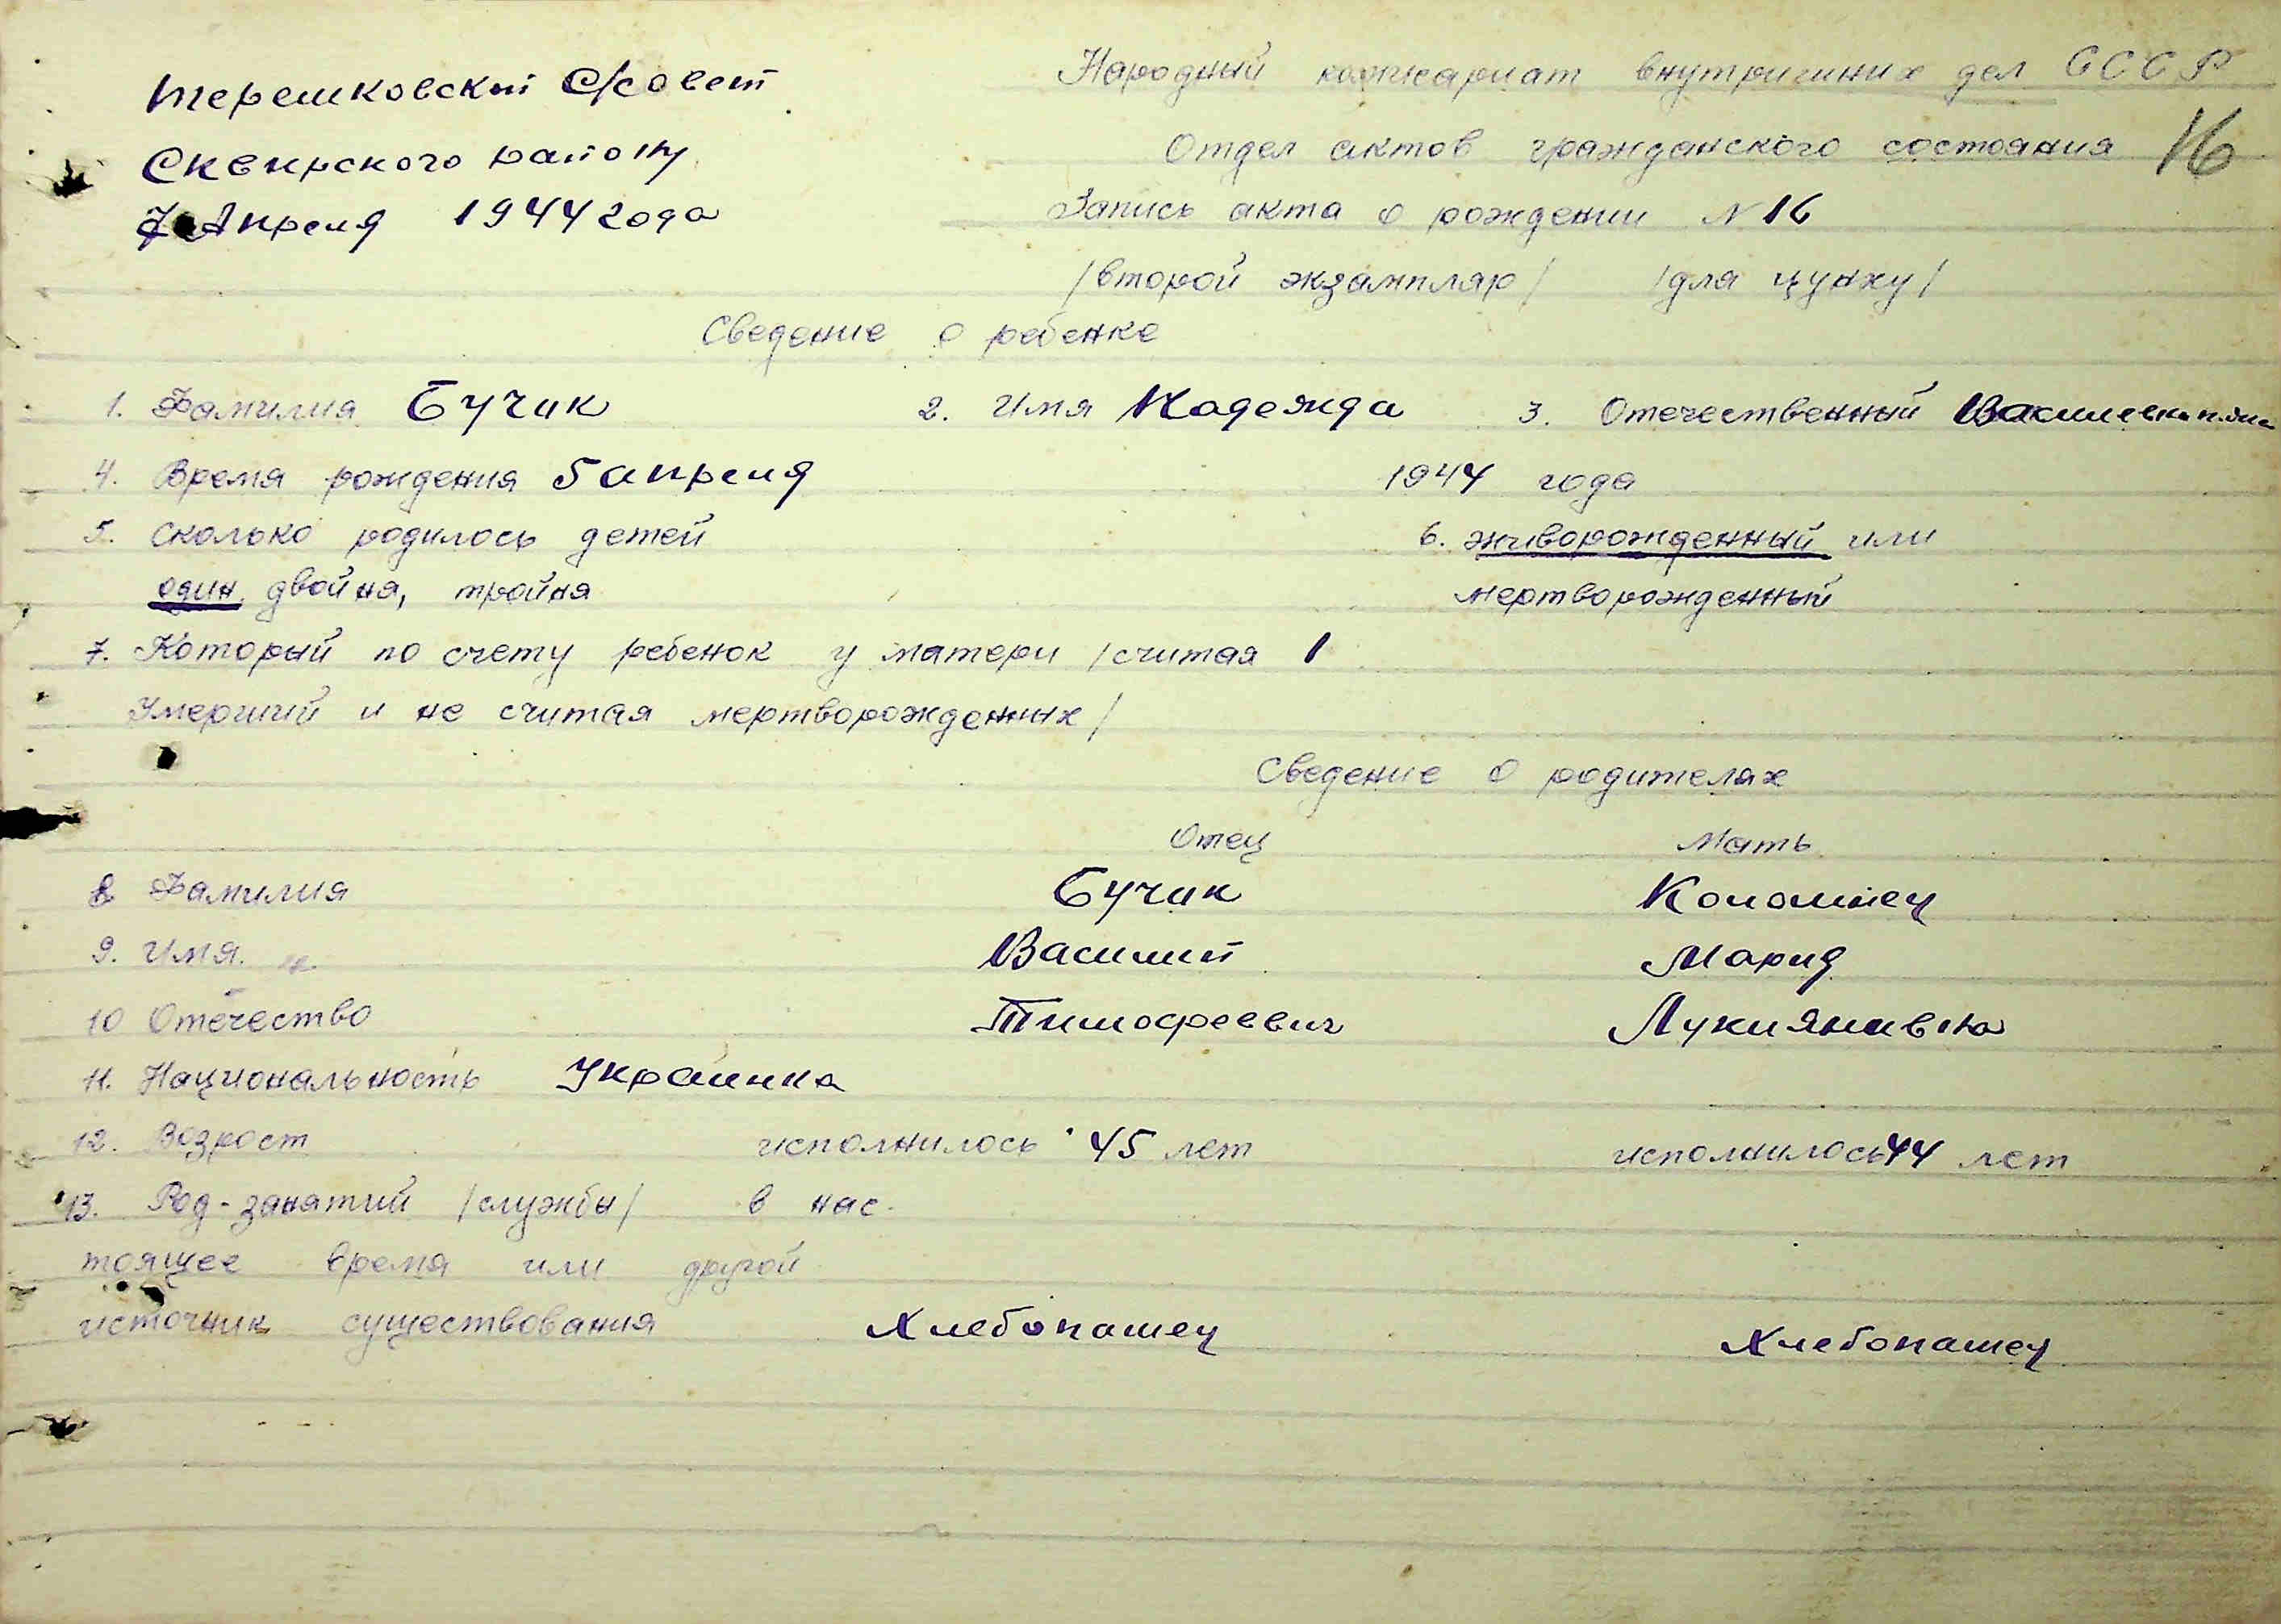 Терешковский С/совет
Сквирского району
7 Апреля 1944 года
Народный комисариат внутриших дел СССР
Отдел актов гражданского состояния 16
Запись акта о рождении N 16
/второй экзампляр/ /для цунху/
Сведение о ребенке
1. Фамилия Бучик 2. Имя Надежда 3. Отечественный
4. Время рождения 5 апреля 1944 года
5. Сколько родилось детей 6. живорожденный или
один, двойня, тройня мертворожденный
7. Который по счету ребенок у матери /считая 1
Умерший и не считая мертворожденных/
Сведение о родителях
Отец Мать
8 Фамилия Бучик Коломиец
9. Имя. Василий Мария
10 Отечество Тимофеевич Лукиянивна
11. Национальность Украинка
12. Возрост исполнилось 45 лет исполнилось 44 лет
13. Род-занятий /службы/ в нас-
тоящее время или другой
источник существования Хлебопашец Хлебопашец